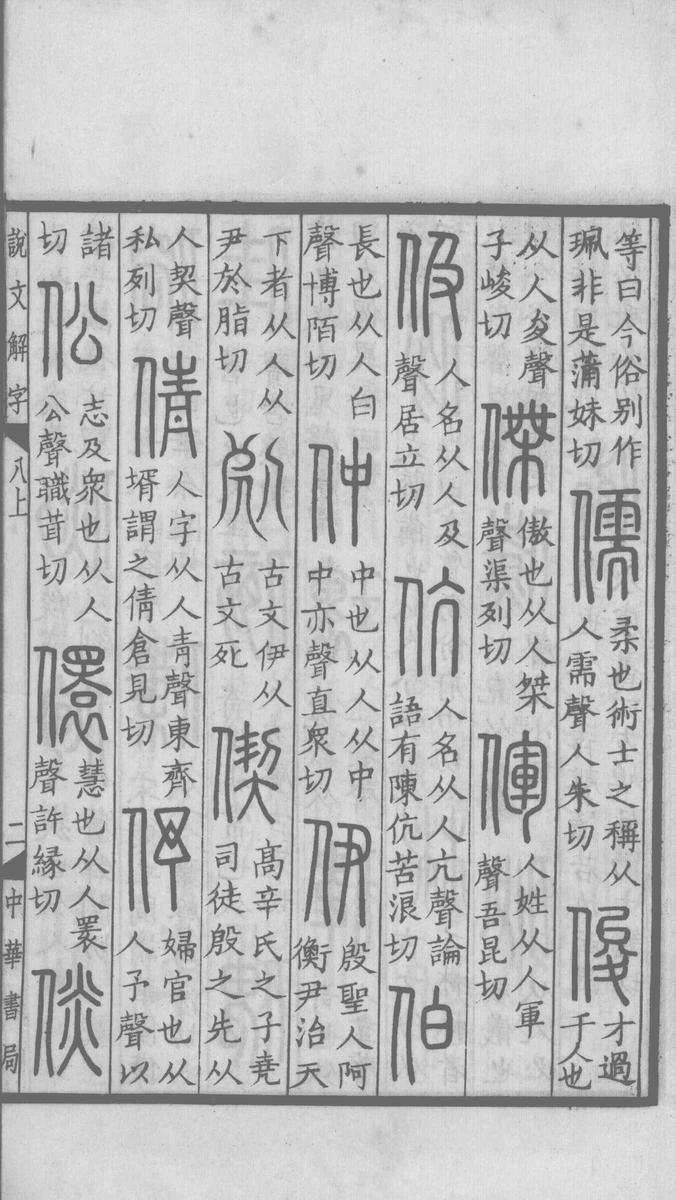 等曰今俗别作珮非是蒲妹切 儒 柔也術士之稱从人需聲人朱切 俊 才過千人也
从人夋聲子峻切 傑 傲也从人桀聲渠列切 僤 人姓从人軍聲吾昆切
伋 人名从人及聲居立切 伉 人名从人亢聲論語有陳伉苦浪切 伯
長也从人白聲博陌切 仲 中也从人从中中亦聲直衆切 伊 殷聖人阿衡尹治天
下者从人从尹於脂切 古文伊从古文死 偰 高辛氏之子堯司徒殷之先从
人契聲私列切 倩 人字从人青聲東齊壻謂之倩倉見切 伃 婦官也从人予聲以
諸切 伀 志及衆也从人公聲職茸切 儇 慧也从人瞏聲許縁切 倓
說文解字 八上 二 中華書局